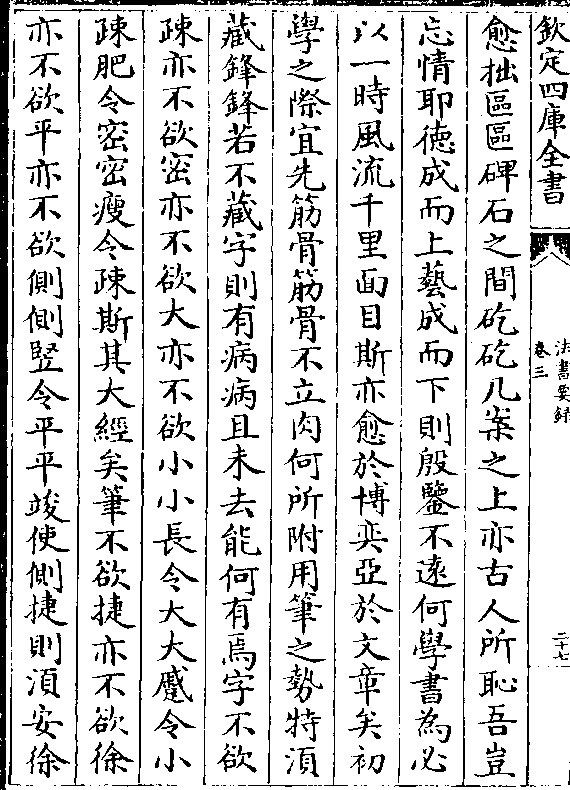 欽定四庫全書
法書要録
卷三
二十七
愈拙區區碑石之間矻矻几案之上亦古人所恥吾豈
忘情耶徳成而上藝成而下則殷鑒不逺何學書為必
以一時風流千里面目斯亦愈於博奕亞於文章矣初
學之際宜先筋骨筋骨不立肉何所附用筆之勢特湏
藏鋒鋒若不藏字則有病病且未去能何有焉字不欲
疎亦不欲密亦不欲大亦不欲小小長令大大蹙令小
疎肥令密密瘦令疎斯其大經矣筆不欲捷亦不欲徐
亦不欲平亦不欲側側竪令平平竣使側捷則湏安徐